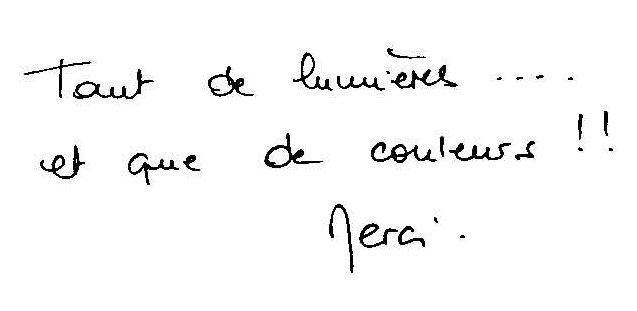 Tant de lumières ....
et que de couleurs !!
Merci.